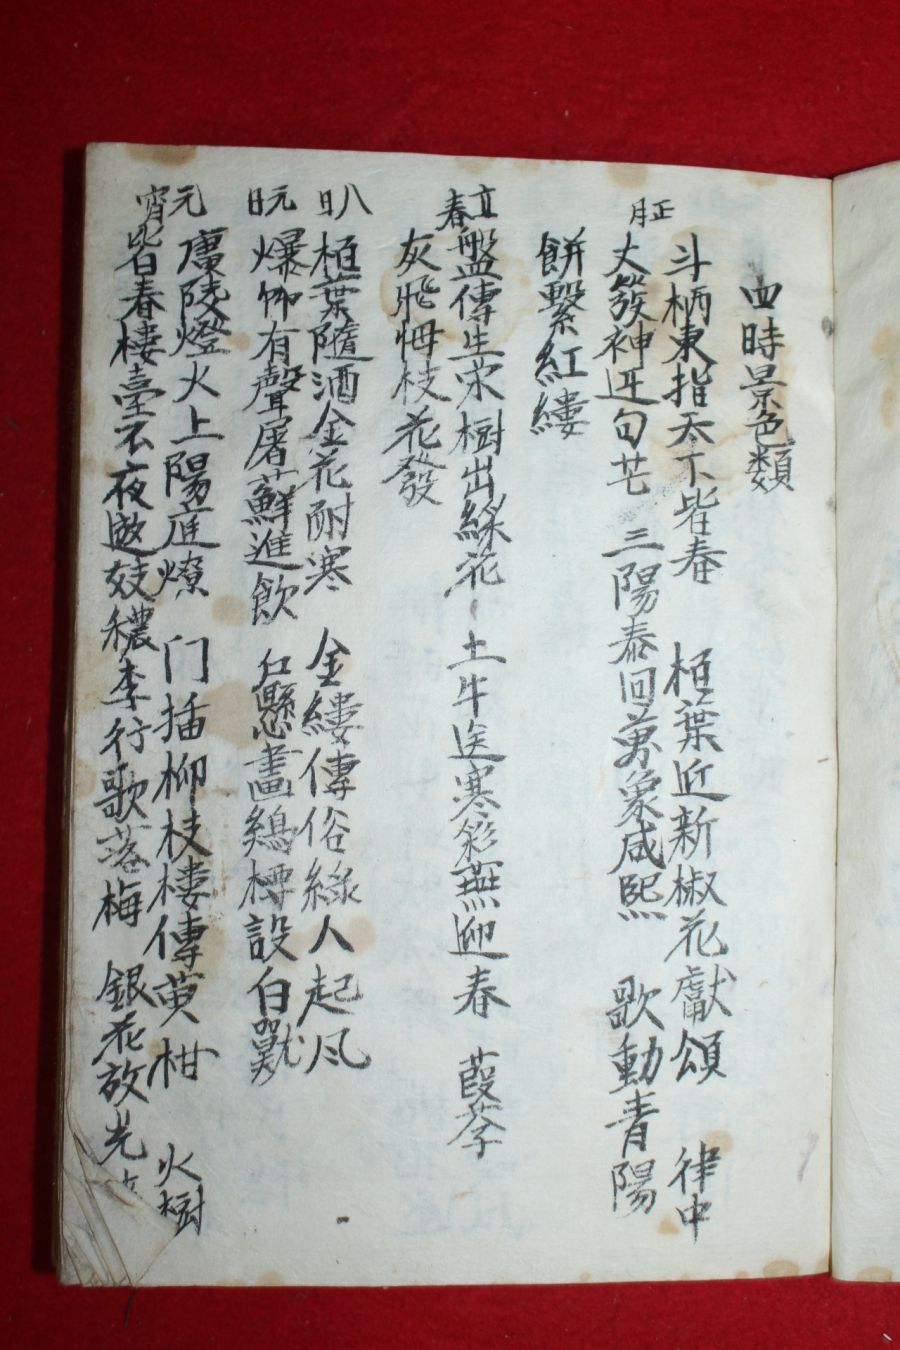 四時景色類
正月
斗柄東指天下皆春 栢葉近新椒花獻頌 律中
太簇神迓句芒 三陽泰回萬象咸熙 歌動青陽
餠繫紅縷
立春
盤傳生菜樹出綵花 土牛送寒彩燕迎春 葭莩
灰飛梅枝花發
人日
栢葉隨酒金花耐寒 金縷傳俗綵人起風
元日
爆竹有聲屠蘇進飮 戶懸畫鷄樽設白獸
元宵
廣陵燈火上陽庭燎 门插柳枝樓傳黃柑 火樹
皆春樓臺不夜遊妓穠李行歌落梅 銀花放光